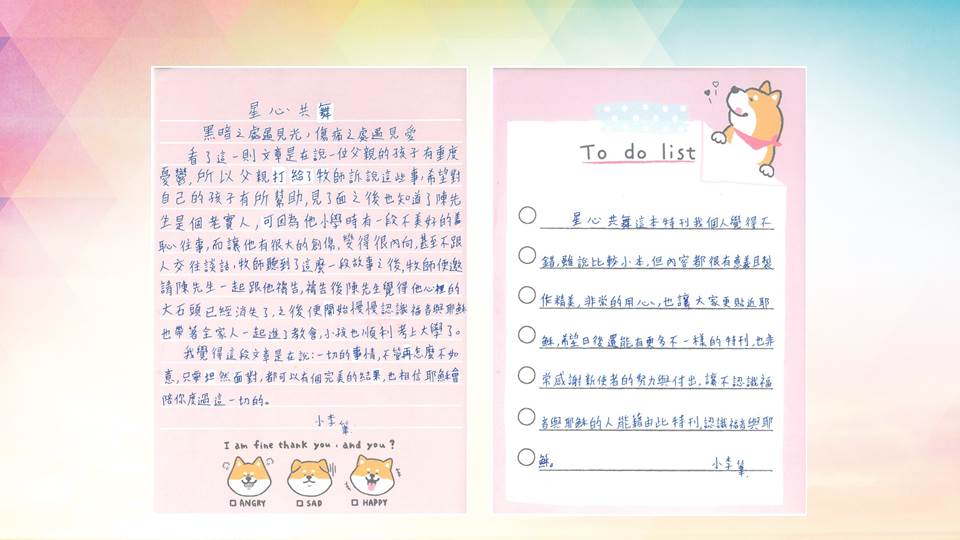 星心共舞
黑暗之處遇見光，傷痛之處遇見愛
看了這一則文章是在說一位父親的孩子有重度
憂鬱，所以父親打給了牧師訴說這些事，希望對
自己的孩子有所幫助，見了面之後也知道了陳先
生是個老實人，可因為他小學時有一段不美好的羞
恥往事，而讓他有很大的創傷，變得很內向，甚至不跟
人交往談話，牧師聽到了這麼一段故事之後，牧師便邀
請陳先生一起跟他禱告，禱告後陳先生覺得他心裡的
大石頭已經消失了，之後便開始慢慢認識福音與耶穌
也帶著全家人一起進了教會，小孩也順利考上大學了。
我覺得這段文章是在說：一切的事情，不管再怎麼不如
意，只要坦然面對，都可以有個完美的結果，也相信耶穌會
陪你度過這一切的。
小李筆
I am fine thank you, and you?
ANGRY SAD HAPPY
To do list
星心共舞這本特刊我個人覺得不
錯，雖說比較小本，但內容都很有意義且製
作精美，非常的用心，也讓大家更貼近耶
穌，希望日後還能有更多不一樣的特刊，也非
常感謝新使者的努力與付出，讓不認識福
音與耶穌的人能藉由此特刊，認識福音與耶
穌。
小李筆